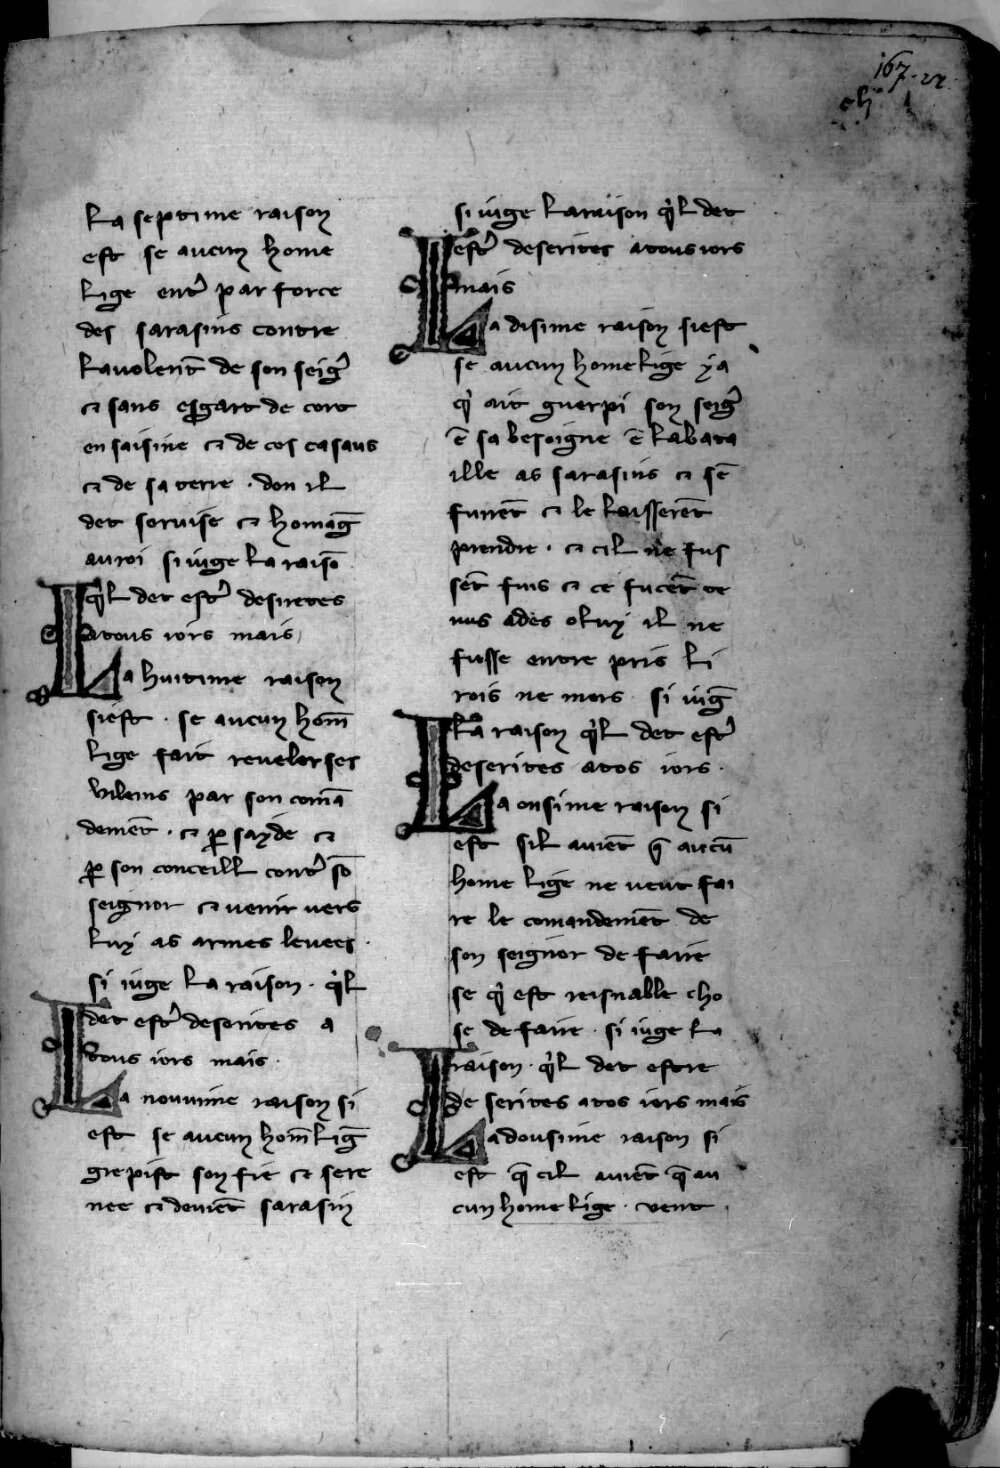 167. 22
eh 1
La septime raison
est se aucun home
lige entr̾ par force
des sarasins contre
lauolent̄ de son seigr̄
⁊ sans esgart de cort
en saisine ⁊ de cos casaus
⁊ de sa terre · don il
det seruise ⁊ homaḡ
au roi si iuge la raisō
q̇l det estr̾ desiretes
atous iors mais
La huitime raison
siest · se aucun hom̄
lige fait reueler ses
vileins par son comā
dement̄ · ⁊ ꝑ sayde ⁊
ꝑ son conceill contr̾ sō
seignor ⁊ uenir uers
luy as armes leuees ·
si iuge la raison · q̇l
det estr̾ deserites a
tous iors mais ·
La nouuime raison si
est se aucun hom̄ liḡ
grepist son fie ⁊ se re
nee ⁊ deuient̄ sarasin
si iuge la raison q̇l det
estr̾ deserites atous iors
mais
La disime raison siest
se aucun home lige ya
q̇ ait guerpi son seigr̄
ē sa besoigne ē la bata
ille as sarasins ⁊ sē
fuirēt ⁊ le laisserēt
prendre · ⁊ cil ne fus
sēt fuis ⁊ ce fucēt te
nus ades o luy il ne
fusse entre pris li
rois ne mors · si iuḡ
la raison q̇l det estr̾
deserites a tos iors ·
La onsime raison si
est sil auiēt q̄ aucū
home lige ne ueut fai
re le comandemēt de
son seignor de faire
se q̇ est reisnable cho
se de faire · si iuge la
raison · q̇l det estre
de serites atos iors mais
La dousime raison si
est q̄ cil auiēt q̄ au
cun home lige · vent